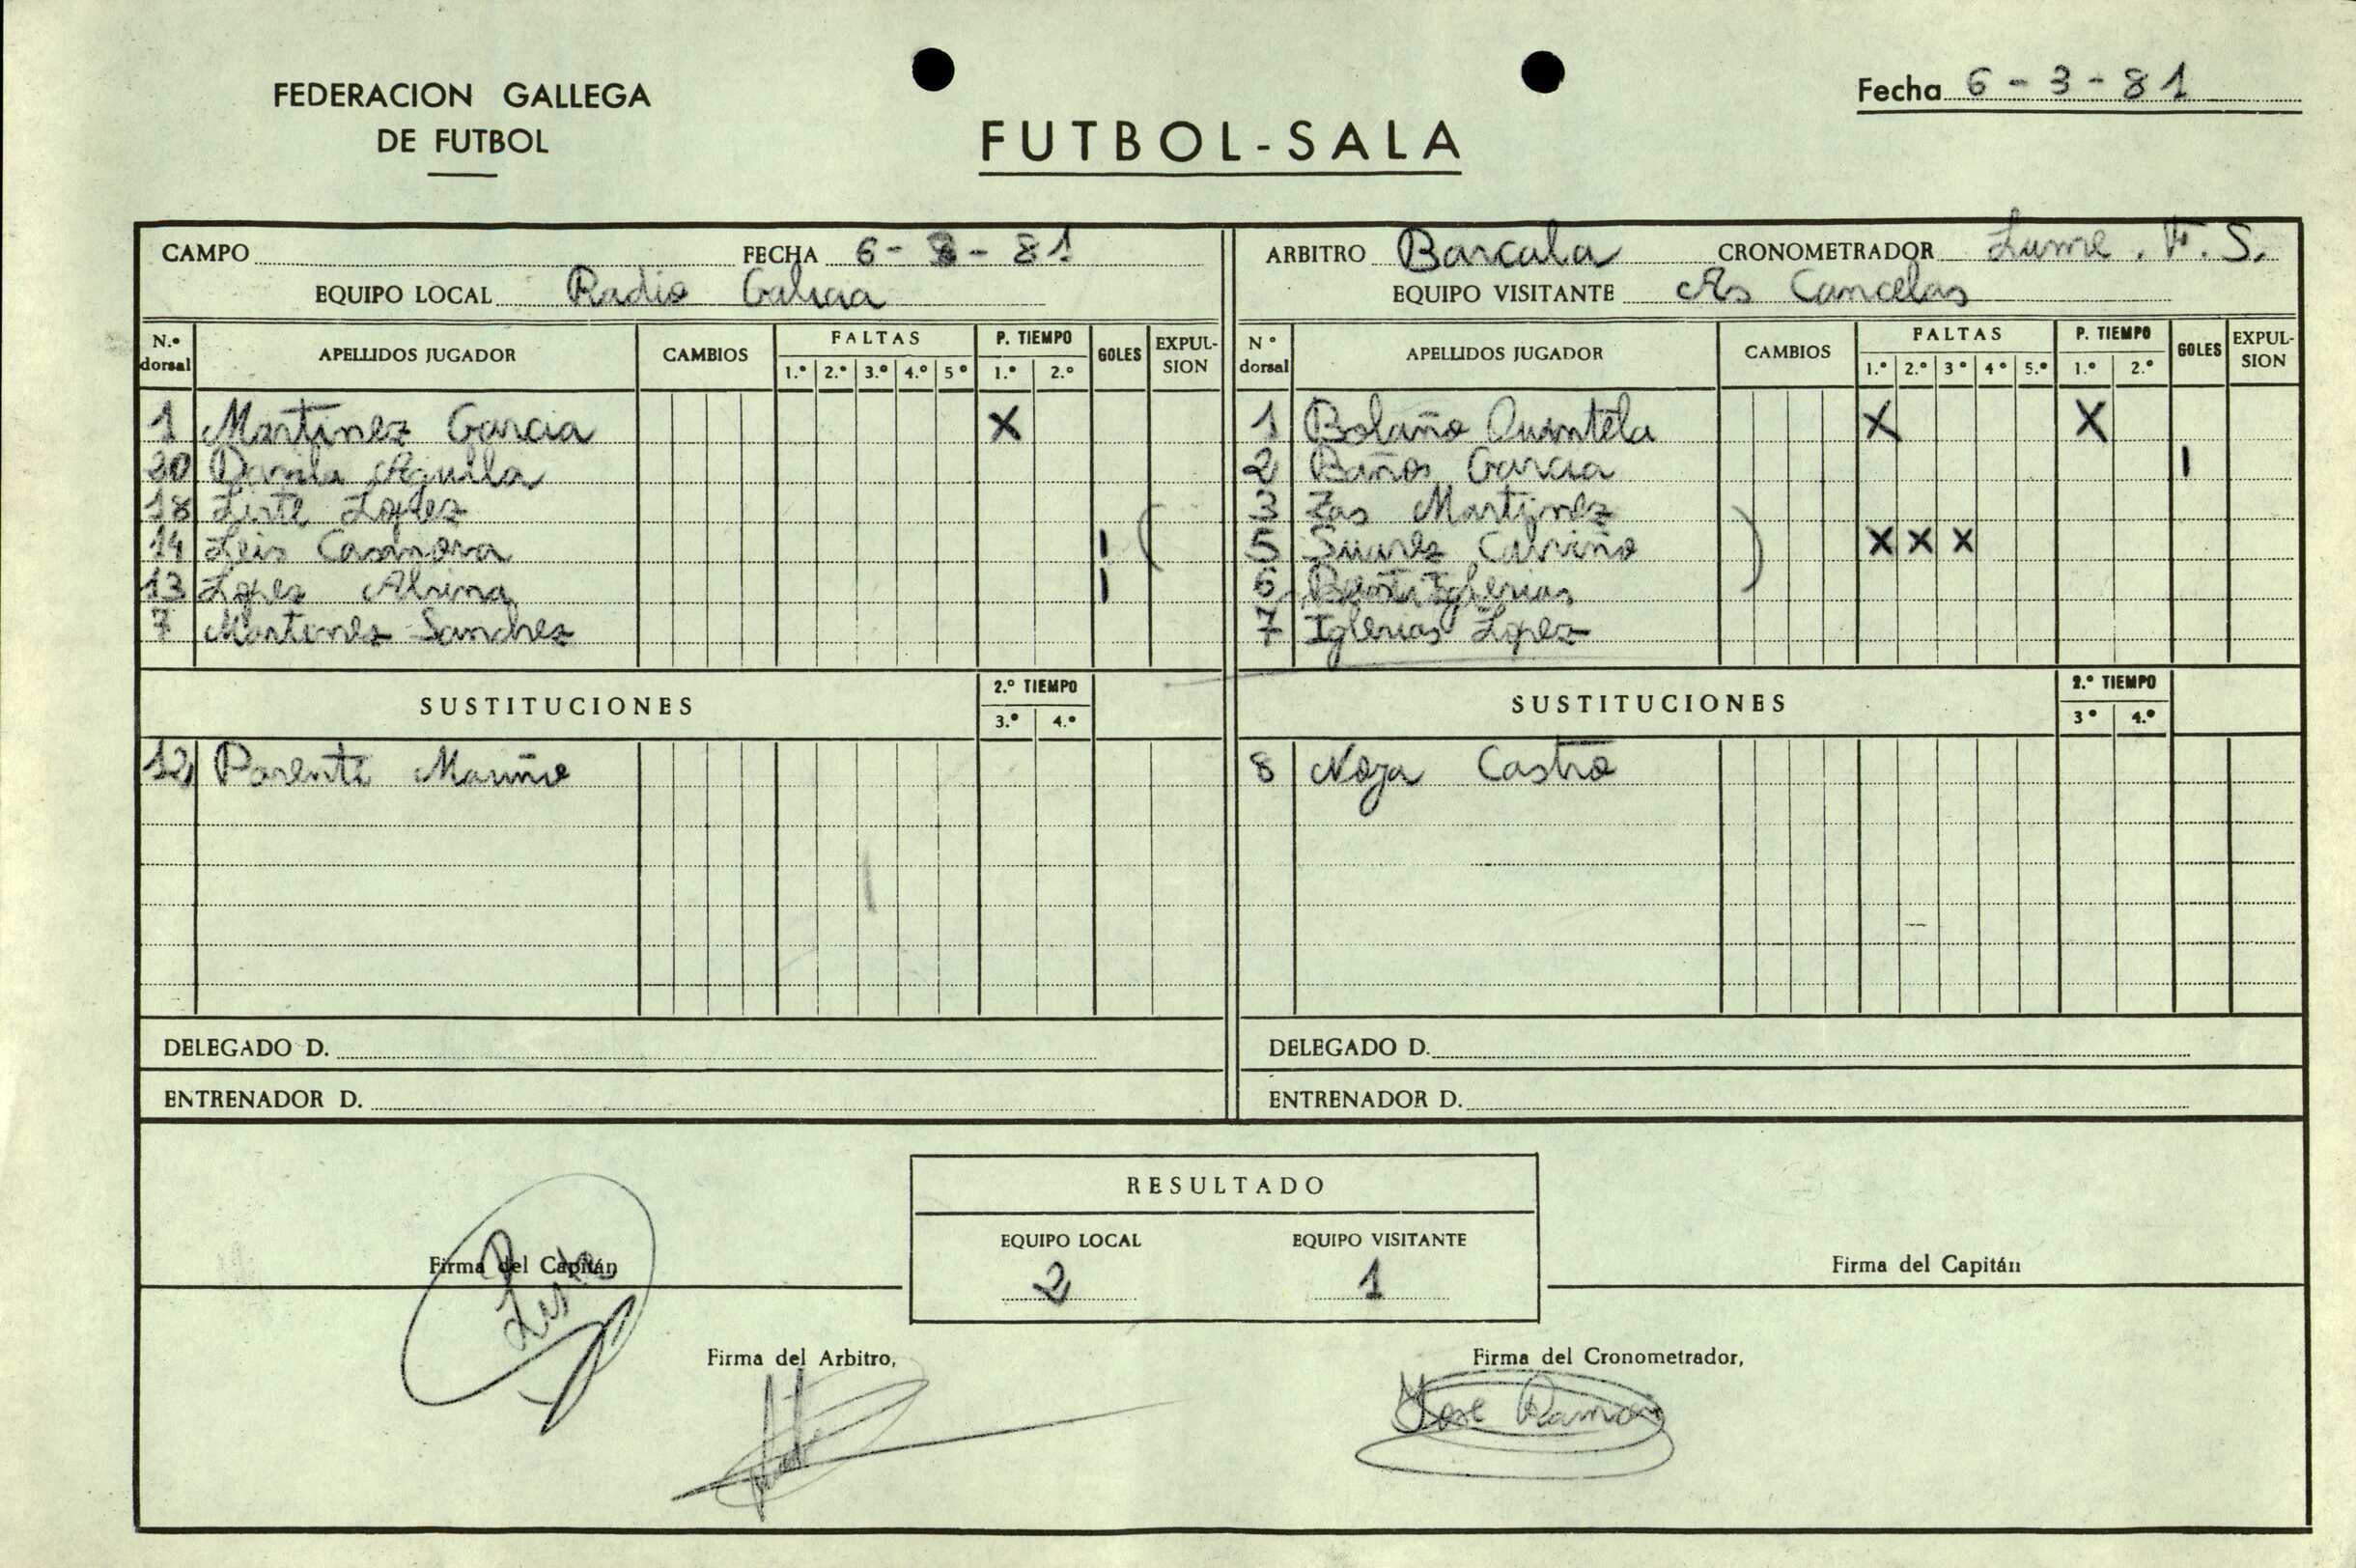 FEDERACION GALLEGA
DE FUTBOL
FUTBOL-SALA
Fecha 6-3-81
CAMPO FECHA 6-3-81
EQUIPO LOCAL Radio Galicia
ARBITRO Barcala CRONOMETRADOR Lume. F. S.
EQUIPO VISITANTE As Cancelas
N.º dorsal APELLIDOS JUGADOR CAMBIOS FALTAS 1.º 2.º 3.º 4.º 5º P. TIEMPO 1.º 2.º GOLES EXPULSION
1 Martinez Garcia X
20 Davila Aguila
18 Liste Lopez
14 Leis Casanova I
13 Lopez I
7 Martinez Sanchez
SUSTITUCIONES 2.º TIEMPO 3.º 4.º
12 Parente Mariño
DELEGADO D.
ENTRENADOR D.
Nº dorsal APELLIDOS JUGADOR CAMBIOS FALTAS 1.º 2.º 3º 4º 5.º P. TIEMPO 1.º 2.º GOLES EXPULSION
1 Bolaño Quintela X X
2 Baños Garcia I
3 Zas Martinez
5 Suarez Calviño X X X
6 Iglesias
7 Iglesias Lopez
SUSTITUCIONES 2.º TIEMPO 3º 4.º
8 Noya Castro
DELEGADO D.
ENTRENADOR D.
RESULTADO
EQUIPO LOCAL EQUIPO VISITANTE
2 1
Firma del Capitán
Liste
Firma del Capitán
Firma del Arbitro,
Firma del Cronometrador,
Jose Ramon